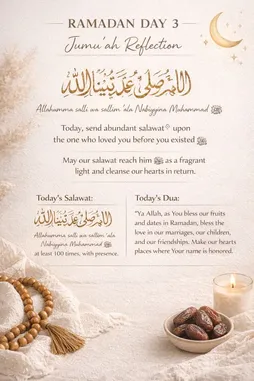 RAMADAN DAY 3
Jumu'ah Reflection
Allahumma salli wa sallim 'ala Nabiyyina Muhammad ﷺ
Today, send abundant salawat upon
the one who loved you before you existed ﷺ
May our salawat reach him ﷺ as a fragrant
light and cleanse our hearts in return.
Today's Salawat:
Allahumma salli wa sallim 'ala
Nabiyyina Muhammad ﷺ
at least 100 times, with presence.
Today's Dua:
"Ya Allah, as You bless our fruits
and dates in Ramadan, bless
the love in our marriages, our children,
and our friendships. Make our hearts
places where Your name is honored."